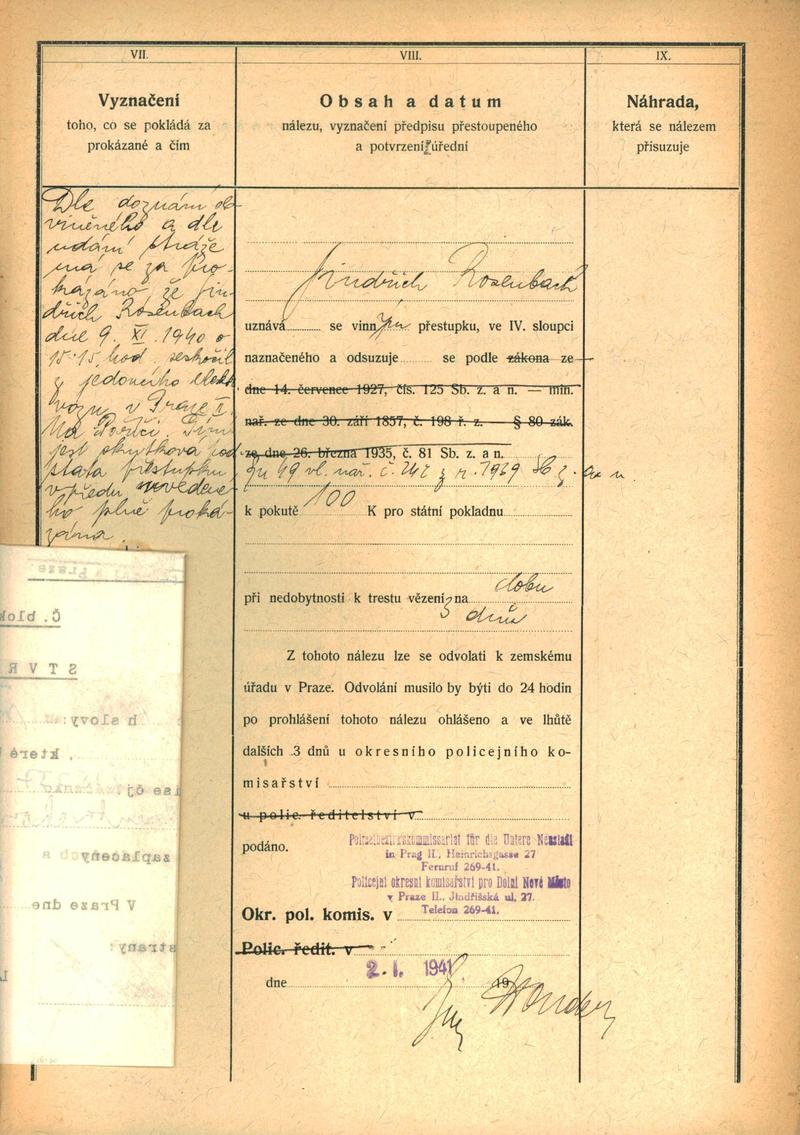 VII.
Vyznačení
toho, co se pokládá za
prokázané a čím
Dle doznání ob-
viněného a dle
udání stráže
má se za pro-
kázáno, že Jin-
dřich Rosenbach
dne 9. XI. 1940 o
15·15 hod. seskočil
z jedoucího elekt.
vozu v Praze II.
Na Poříčí. Tím
jest skutková pod-
stata přestupku
vpředu uvedené-
ho plně proká-
zána.
VIII.
Obsah a datum
nálezu, vyznačení předpisu přestoupeného
a potvrzení úřední
Jindřich Rosenbach
uznává se vinným přestupku, ve IV. sloupci
naznačeného a odsuzuje se podle zákona ze
dne 14. července 1927, čís. 125 Sb. z. a n. — min.
nař. ze dne 30. září 1857, č. 198 ř. z. § 80 zák.
ze dne 26. března 1935, č. 81 Sb. z. a n.
vl. nař. č. z r. 1939 Sb. z. a n.
k pokutě 100 K pro státní pokladnu
při nedobytnosti k trestu vězení na dobu
3 dnů
Z tohoto nálezu lze se odvolati k zemskému
úřadu v Praze. Odvolání musilo by býti do 24 hodin
po prohlášení tohoto nálezu ohlášeno a ve lhůtě
dalších 3 dnů u okresního policejního ko-
misařství
u polic. ředitelství v
podáno.
Polizeibezirkskommissariat für die Untere Neustadt
in Prag II., Heinrichsgasse 27
Fernruf 269-41.
Policejní okresní komisařství pro Dolní Nové Město
v Praze II., Jindřišská ul. 27.
Telefon 269-41.
Okr. pol. komis. v
Polic. ředit. v
dne 2. I. 1941 19
IX.
Náhrada,
která se nálezem
přisuzuje
Č. blok
S T V R
h slovy:
, které
zaplaceny
V Praze dne
strany: